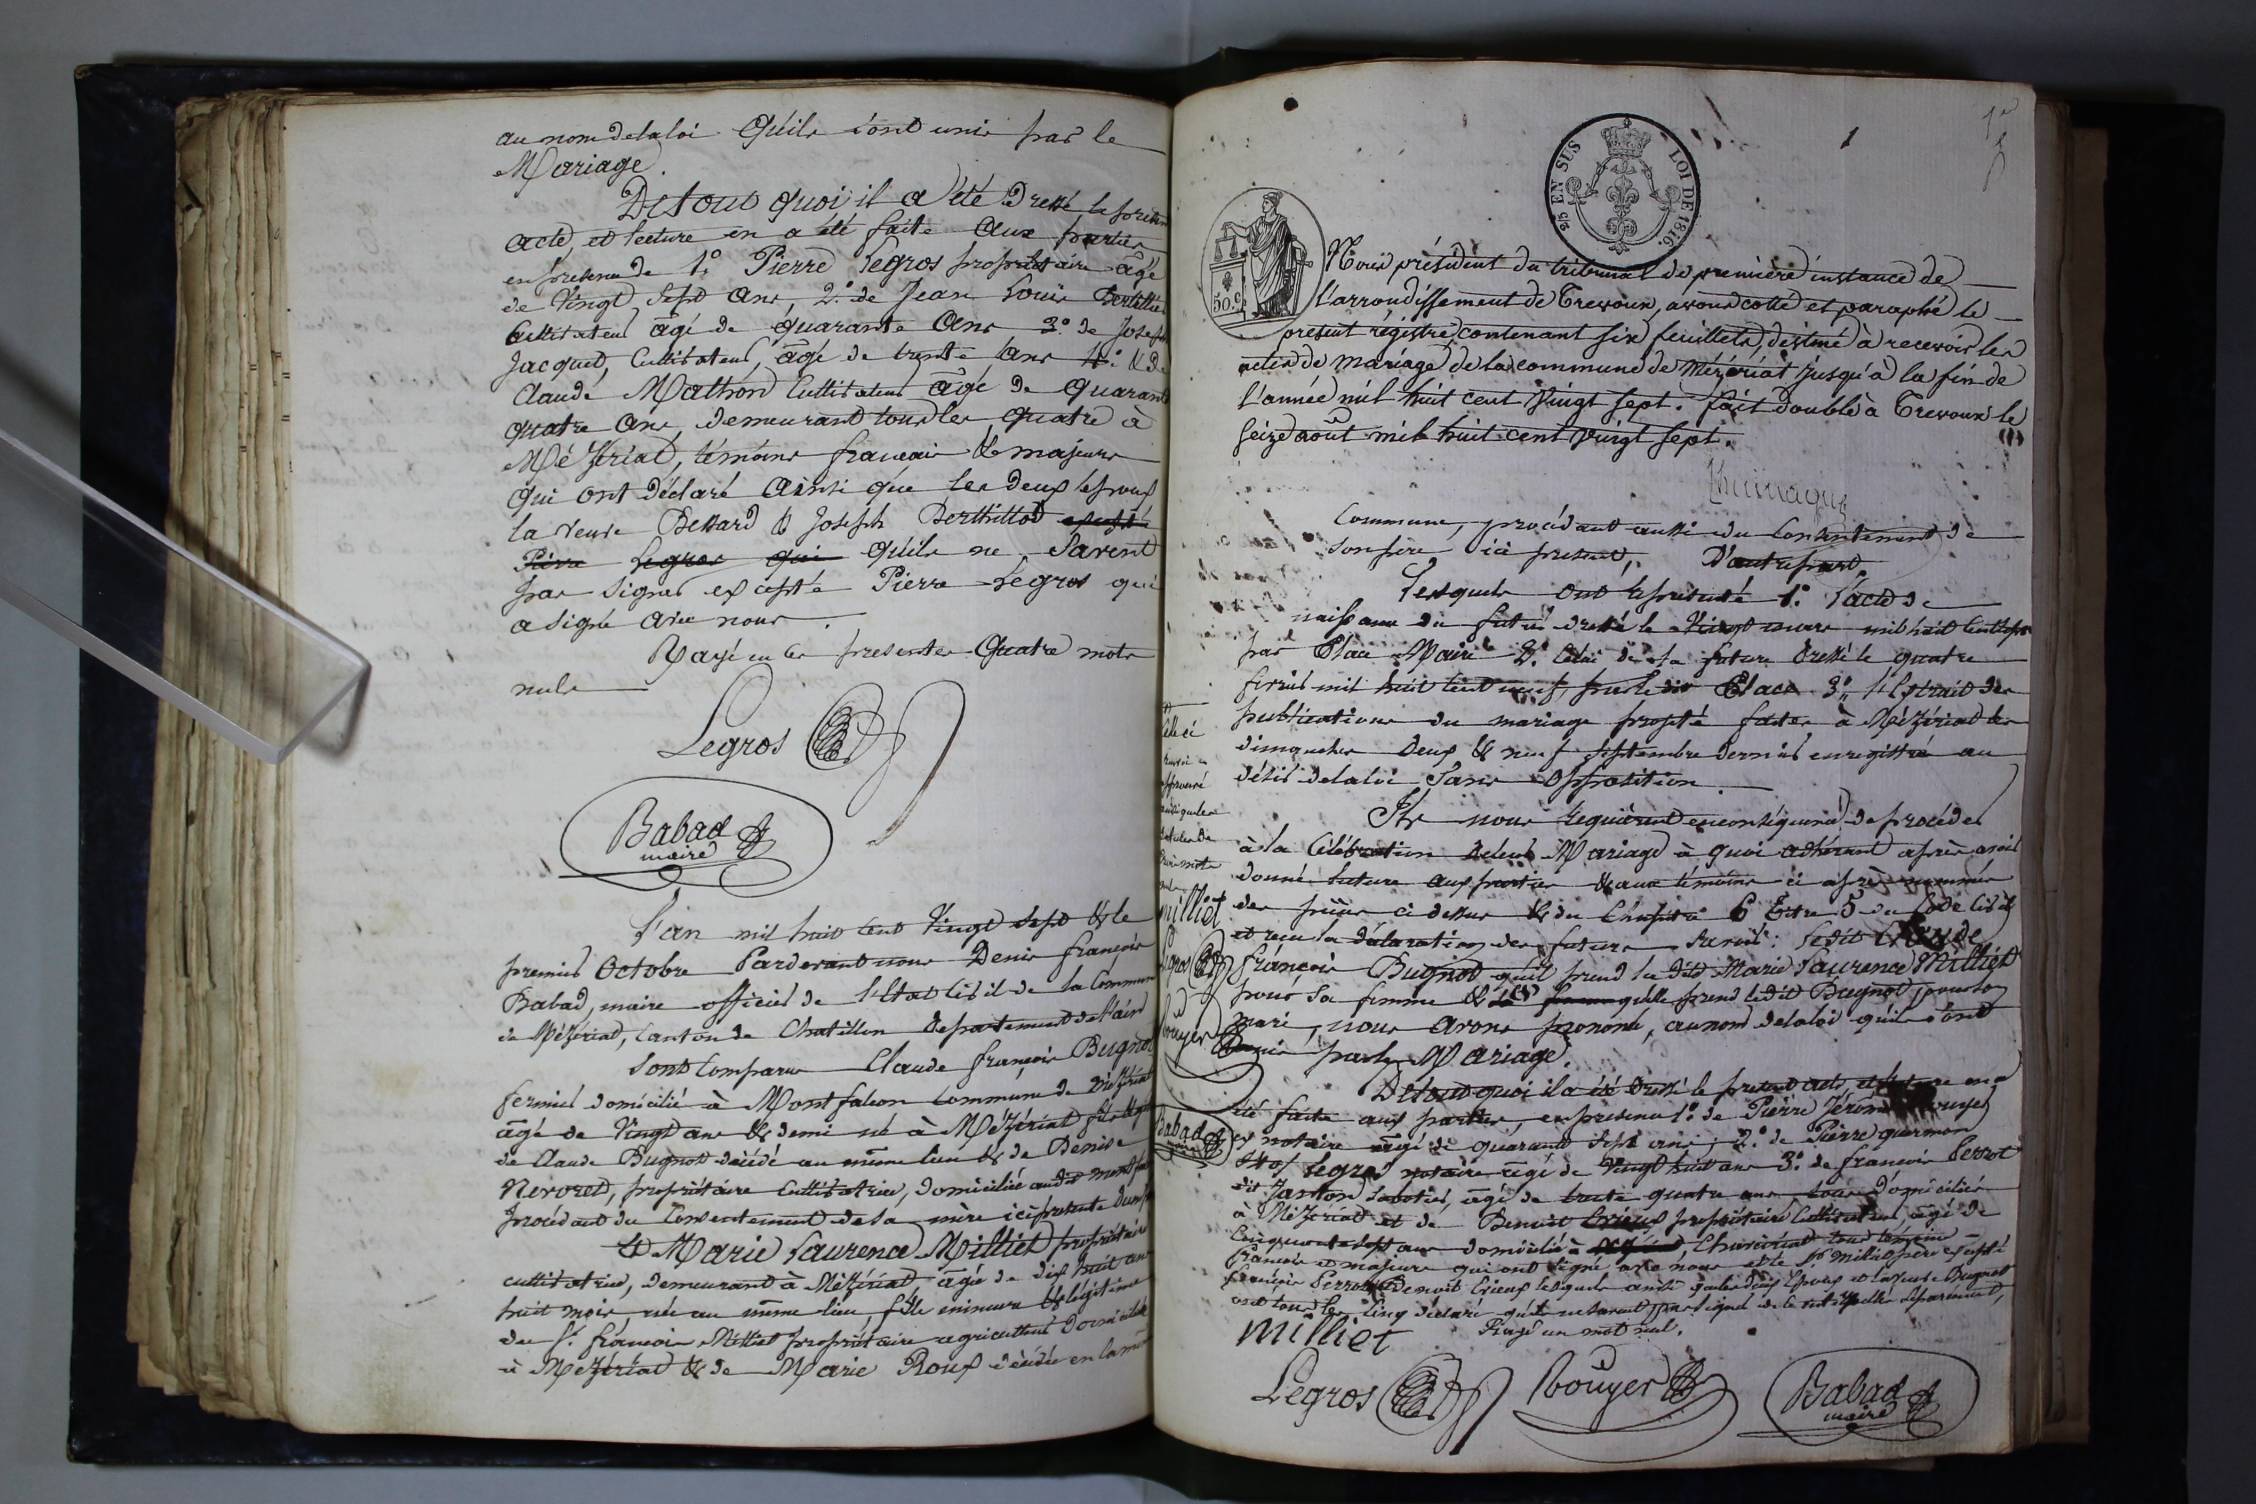 au nom de la loi qu'ils sont unis par le
Mariage.
De tout quoi il a été dressé le présent
acte, et lecture en a été faite aux parties
en presence de 1.° Pierre Legros propriétaire âgé
de Vingt sept ans, 2.° de Jean Louis
Cultivateur âgé de quarante ans 3.° de Joseph
Jacquet, Cultivateur, âgé de trente ans 4.° & de
Claude Mathon Cultivateur âgé de quarante
quatre ans, demeurant tous les quatre à
Mézériat, témoins français & majeurs
qui ont déclaré ainsi que les deux époux
la veuve Bessard & Joseph Berthillod excepté
Pierre Legros qui qu'ils ne savent
pas signer excepté Pierre Legros qui
a signé avec nous.
Rayé en ces presentes quatre mots
nuls
Legros
Babad
maire
L'an mil huit cent Vingt sept & le
premier Octobre Pardevant nous Denis françois
Babad, maire officier de l'Etat civil de la Commune
de Mézériat, Canton de Chatillon département de l'ain
sont Comparus Claude françois Bugnot
fermier domicilié à Montfalcon Commune de Mézériat
âgé de Vingt ans & demi né à Mézériat fils
de Claude Bugnot décédé au même lieu & de Denise
Nevoret, propriétaire Cultivatrice, domiciliée audit montfalcon
procédant du Consentement de sa mère ici présente d'une part
& Marie Laurence Milliet propriétaire
cultivatrice, demeurant à Mézériat âgée de dix huit ans
huit mois née au même lieu, fille mineure & légitime
du S.r françois Milliet propriétaire agriculteur domicilié
à Mézériat & de Marie Roux décédée en la même
1
1er
25 EN SUS
LOI DE 1816.
50.c
Nous président du tribunal de première instance de
l'arrondissement de Trevoux, avons cotté et paraphé le
présent régistre, contenant six feuillets, destiné à recevoir les
actes de mariage de la commune de Mézériat jusqu'à la fin de
l'année mil huit cent vingt sept. fait double à Trevoux le
seize août mil huit cent vingt sept.
Commune, procédant aussi du Consentement de
son père ici présent, D'autre part.
Lesquels ont représenté 1.° l'acte de
naissance du futur dressé le Vingt mars mil huit cent sept
par Place Maire 2.° Celui de la future dressé le quatre
fevrier mil huit cent neuf, par le dit Place 3.° l'Extrait des
publications du mariage projeté faites à Mézériat les
dimanches deux & neuf septembre dernier enregistré au
désir de la loi sans opposition.
Ils nous requièrent en conséquence de procéder
à la Célébration de leur Mariage à quoi adhérant après avoir
donné lecture aux parties & aux témoins ci après nommés
des pièces ci dessus & du Chapitre 6 titre 5 du Code civil
et reçu la déclaration des futurs savoir: ledit Claude
françois Bugnot qu'il prend la dite Marie Laurence Milliet
pour sa femme & qu'elle prend ledit Bugnot pour son
mari, nous avons prononcé, au nom de la loi qu'ils sont
unis par le Mariage.
De tout quoi il a été dressé le présent acte, et lecture en a
été faite aux parties, en présence 1.° de Pierre Jérôme Bouyer
ex notaire âgé de quarante sept ans, 2.° de Pierre
Legros notaire âgé de Vingt huit ans 3.° de françois Perrot
dit Janton sabotier, âgé de trente quatre ans tous domiciliés
à Mézériat et de Benoit Crieux propriétaire Cultivateur, âgé de
Cinquante sept ans domicilié à Chaveyriat tous témoins
français et majeurs qui ont signé avec nous et le S.r Milliet père excepté
françois Perrot & Benoit Crieux lesquels ainsi que les deux Epoux et la veuve Bugnot
ont tous les cinq déclaré qu'ils ne savent pas signer de ce interpellés séparément,
Rayé un mot nul.
milliet
Legros
Bouyer
Babad
maire
milliet
Legros
Bouyer
Babad